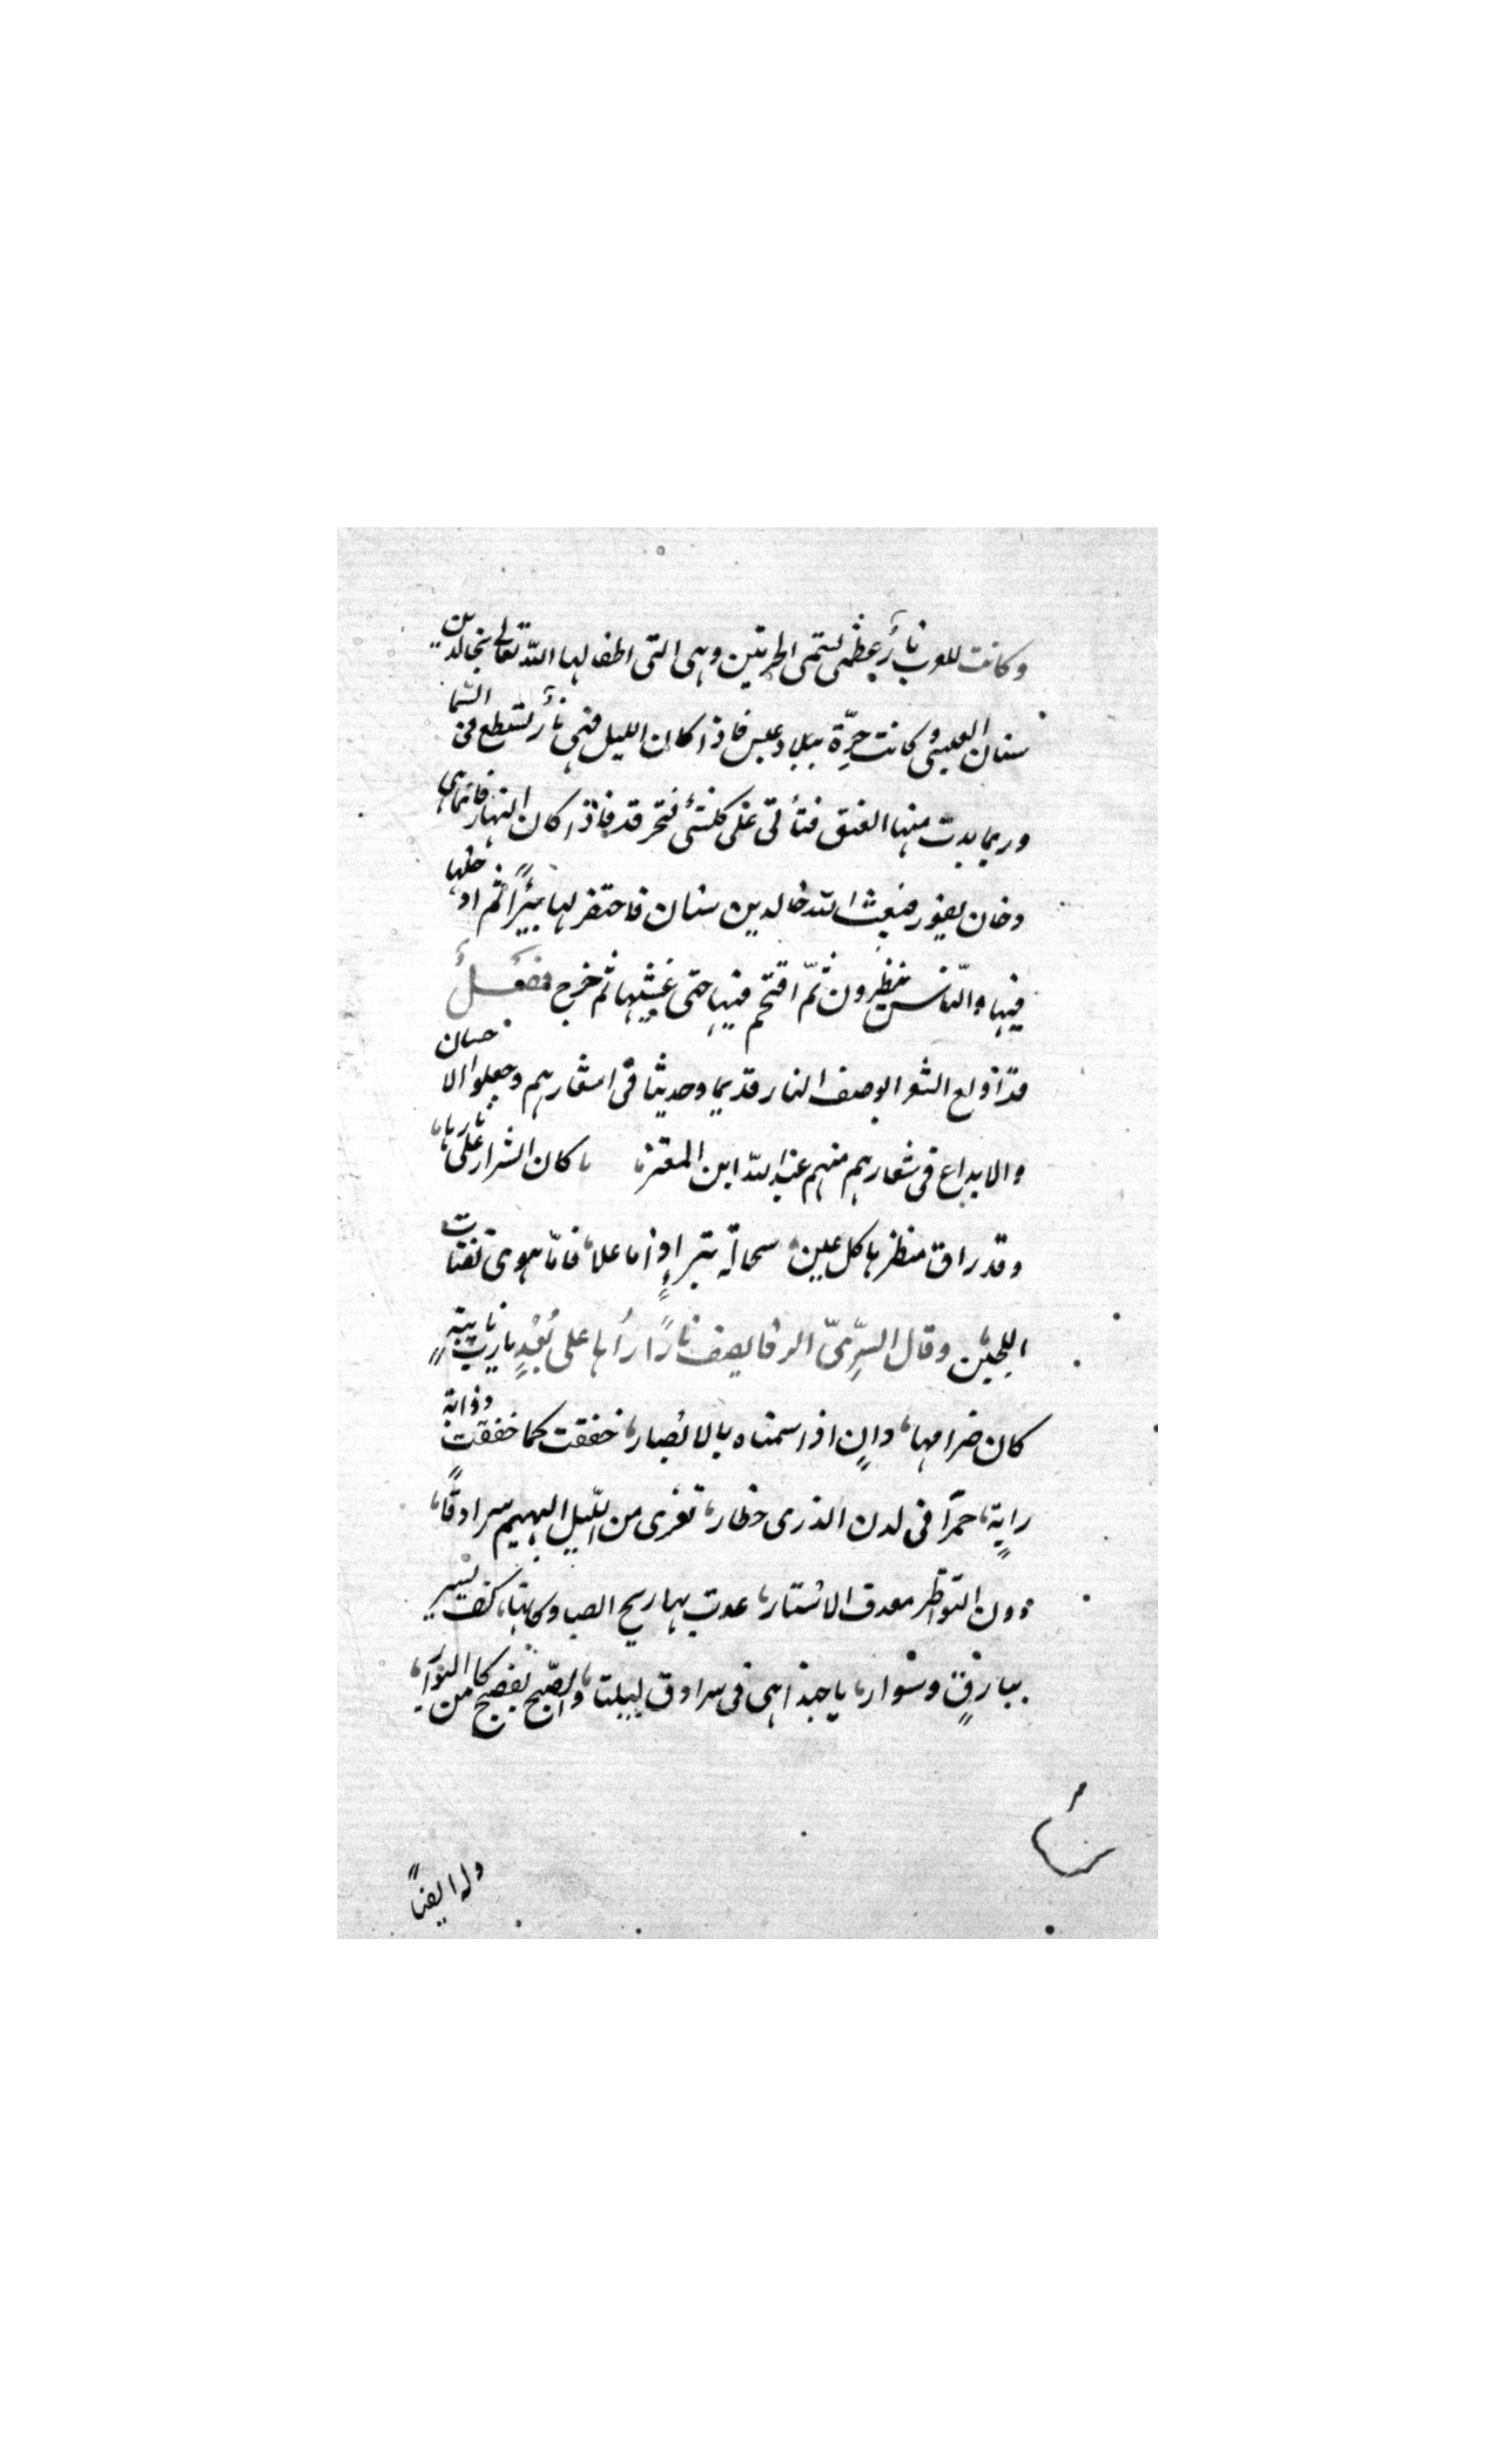 وكانت للعرب نأر عظمى تسمى الحرتين وهى التى اطفالها الله تعالى بخالد بن
سنان العبسى وكانت حرّة ببلاد عبس فاذا كان الليل فهى نأر تسطع فى السّما
وربما بدت منها العنق فتأتى على كلشئ فتحرقه فاذا كان النهار فانما هى
دخان يفور فبعث الله خالد بن سنان فاحتفر لها بيرًا ثم ادخلها
فيها والنّاس ينظرون ثمّ اقتحم فيها حتى غشيها ثم خرج فصلٌ
قد اولع الشعرا بوصف النار قديما وحديثا فى اشعارهم وجعلوا الاحسان
والابداع فى شعارهم منهم عبد الله ابن المعتز، كان الشرار على نارها،
وقد راق منظرها كل عين، سحالة تبرٍ اذا ما علا، فامّا هوى ففتات
اللجين، وقال السّرىّ الرفا يصف نارًا رأها على بُعْدٍ يا رب نايبةٍ
كان ضرامها، دانٍ اذا سمناه بالابصار، خفقت كما خفقت ذؤابة
رايةٍ، حمرآ فى لدن الذرى خطار، تفرى من اللّيل البهيم سرادقًا،
دون النواظر مغدف الاستار، عدت بها ريح الصبا وكانها، كف تشير
ببارقٍ وسوار، يا حبذا هى فى سرادق ليلتا، والصّبح يفضح كامن النوّار،
وله ايضاً